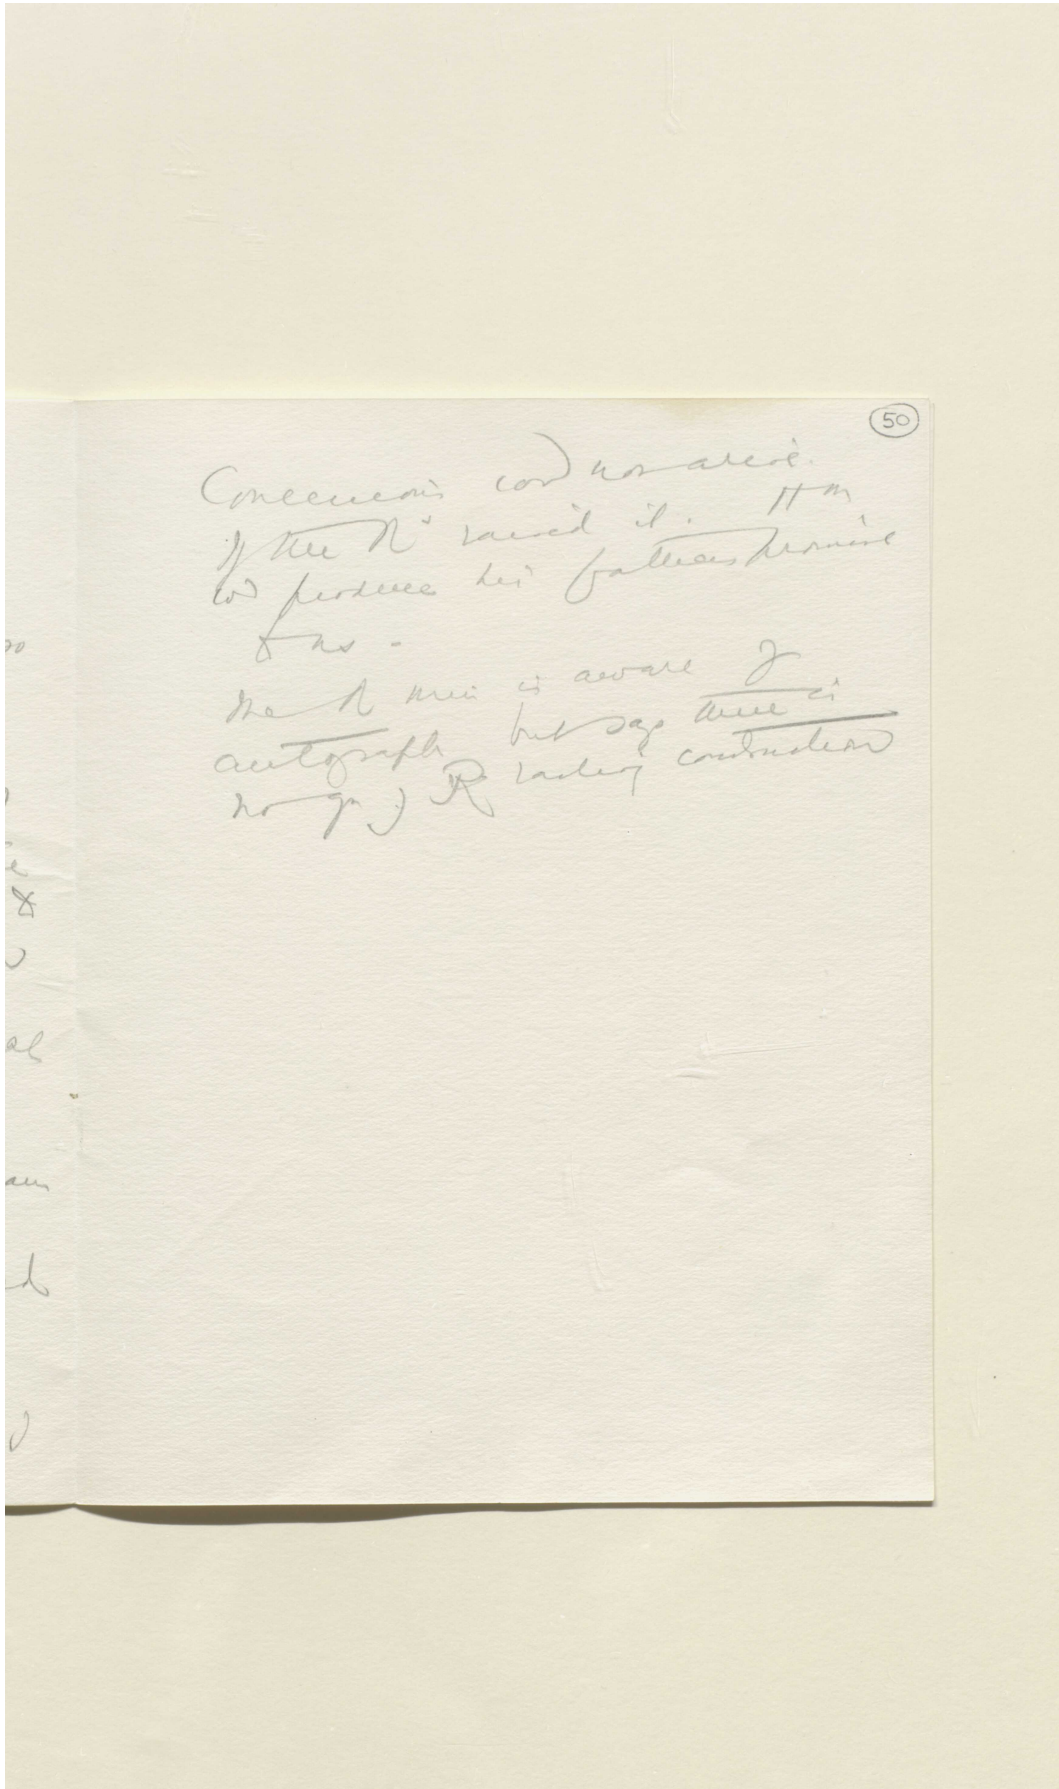 50
cod not arise.
If the Rs raised it. HM
wd produce his fathers promise
to us -
The R min is aware of
autograph but says there is
no qn of R construction